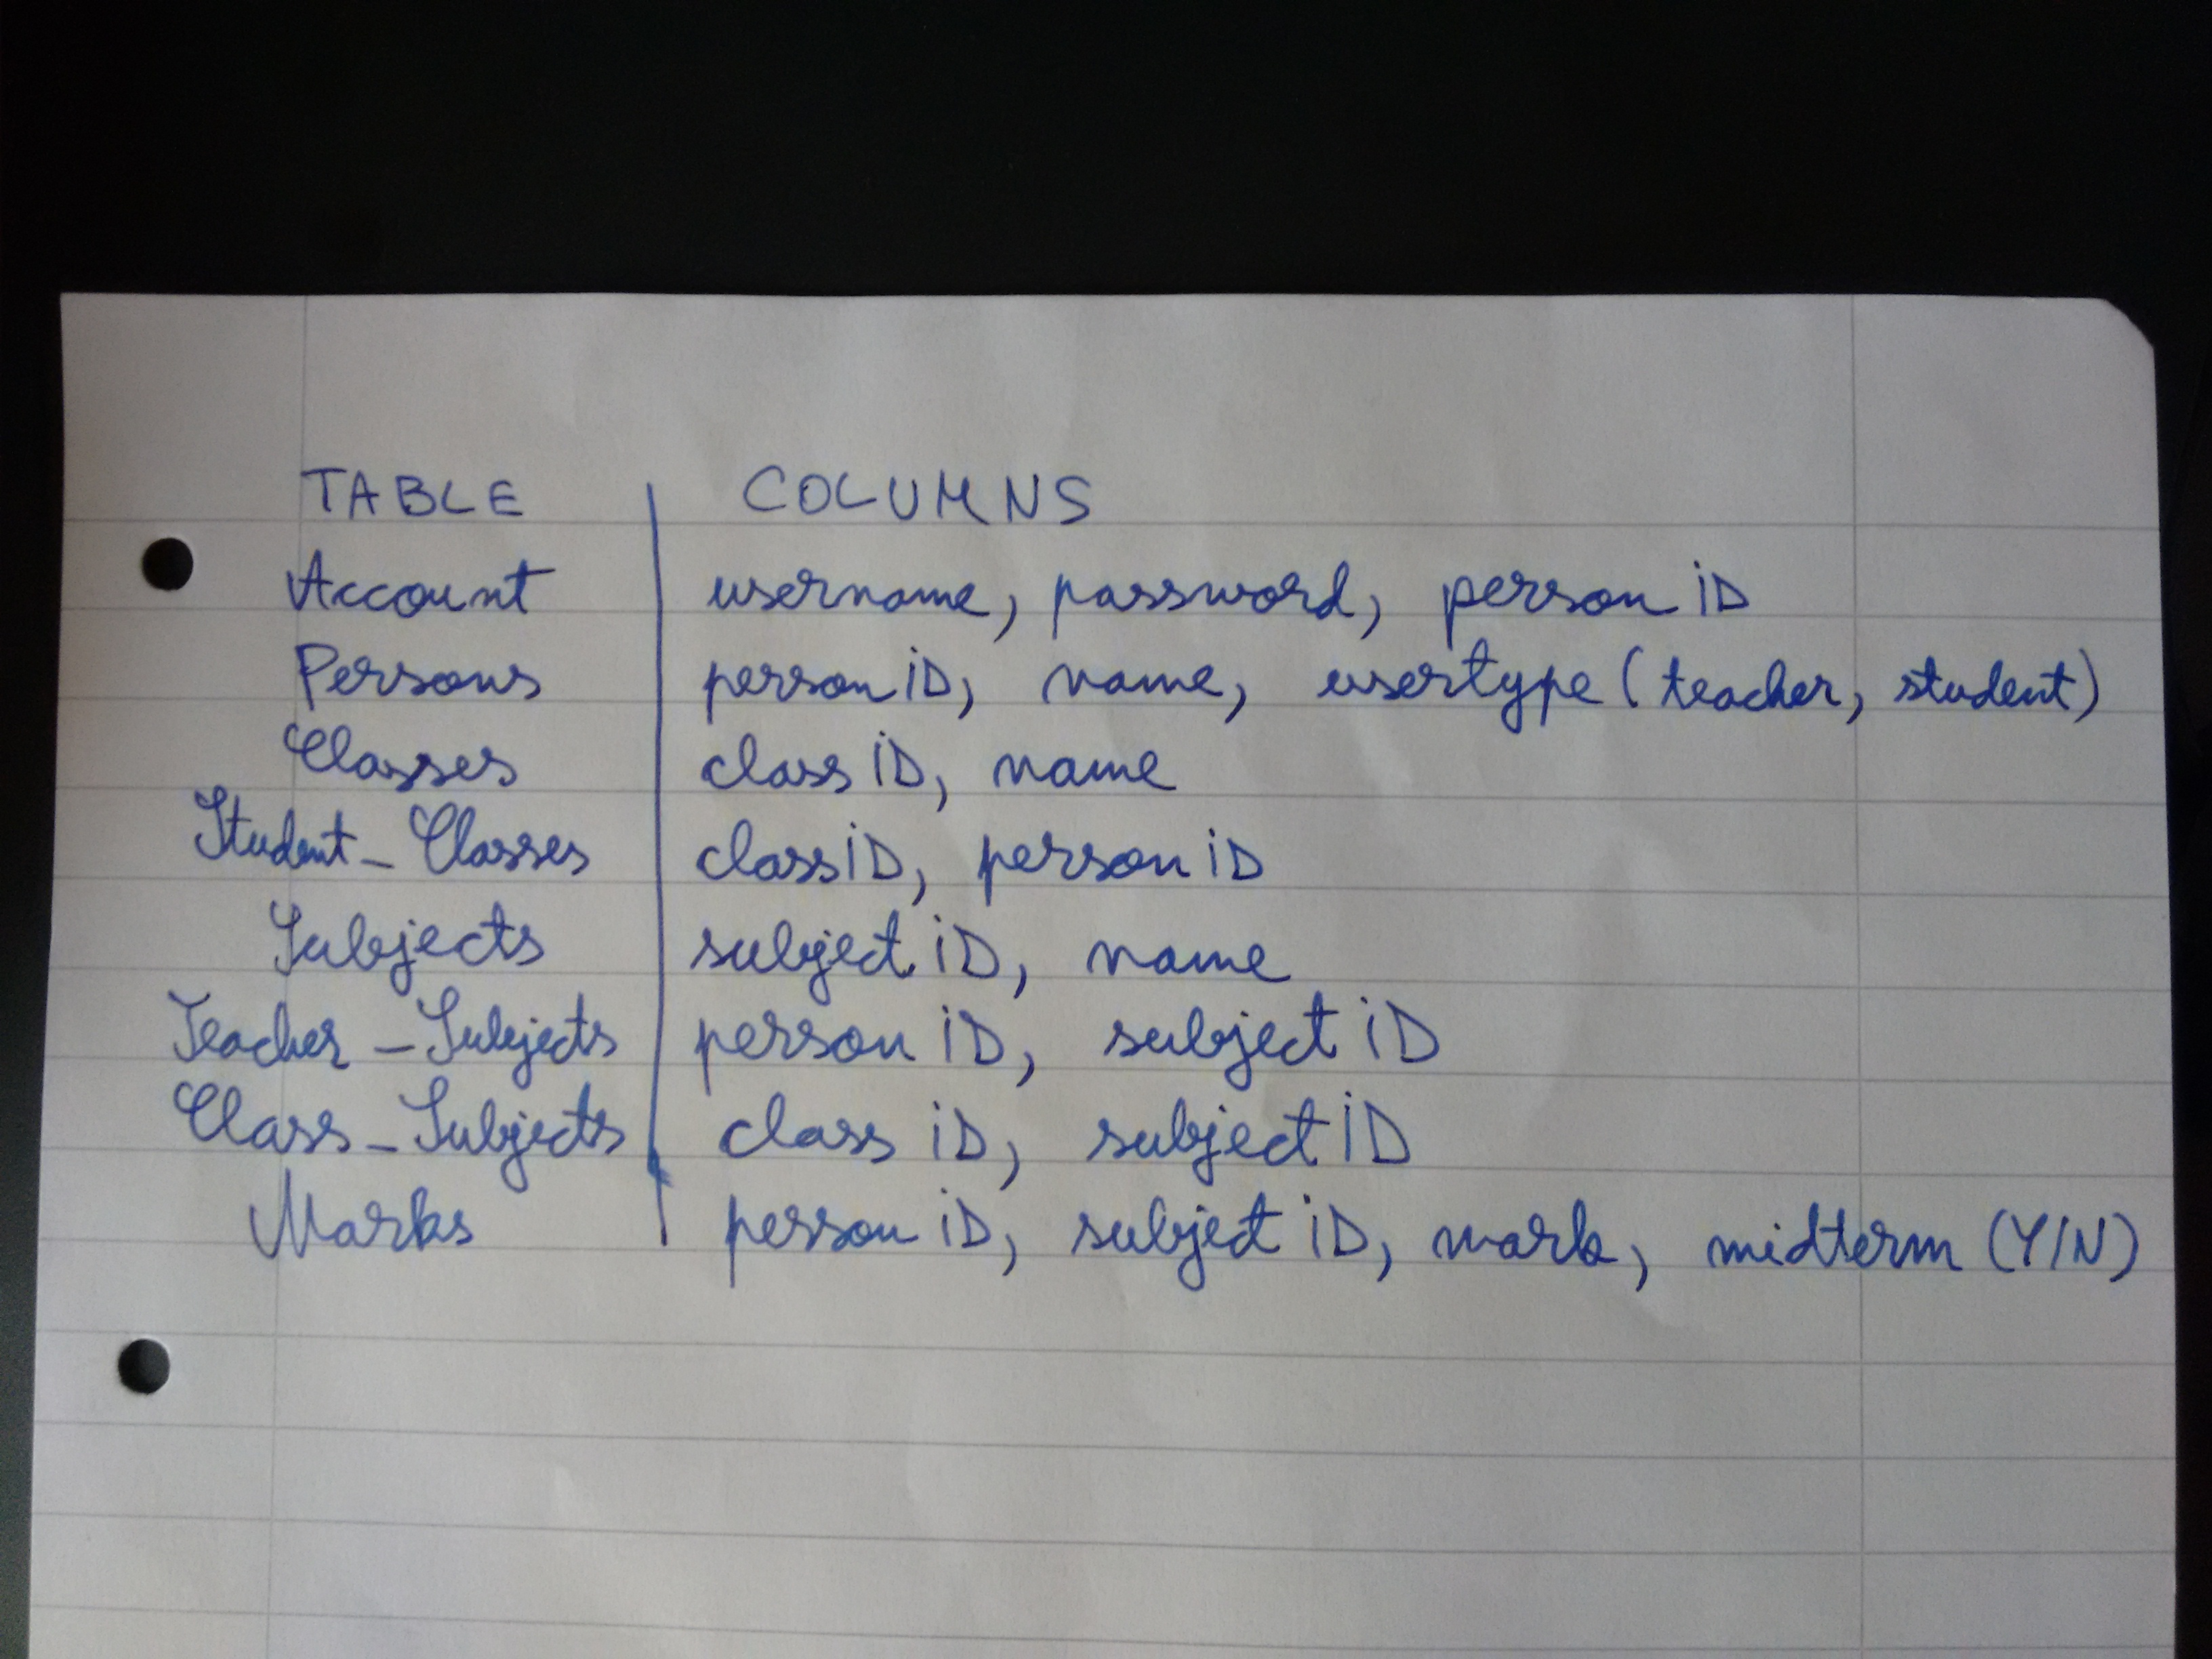 TABLE | COLUMNS
Account | username, password, person iD
Persons | person iD, name, usertype (teacher, student)
Classes | class iD, name
Student_Classes | class iD, person iD
Subjects | subject iD, name
Teacher_Subjects | person iD, subject iD
Class_Subjects | class iD, subject iD
Marks | person iD, subject iD, mark, midterm (Y/N)